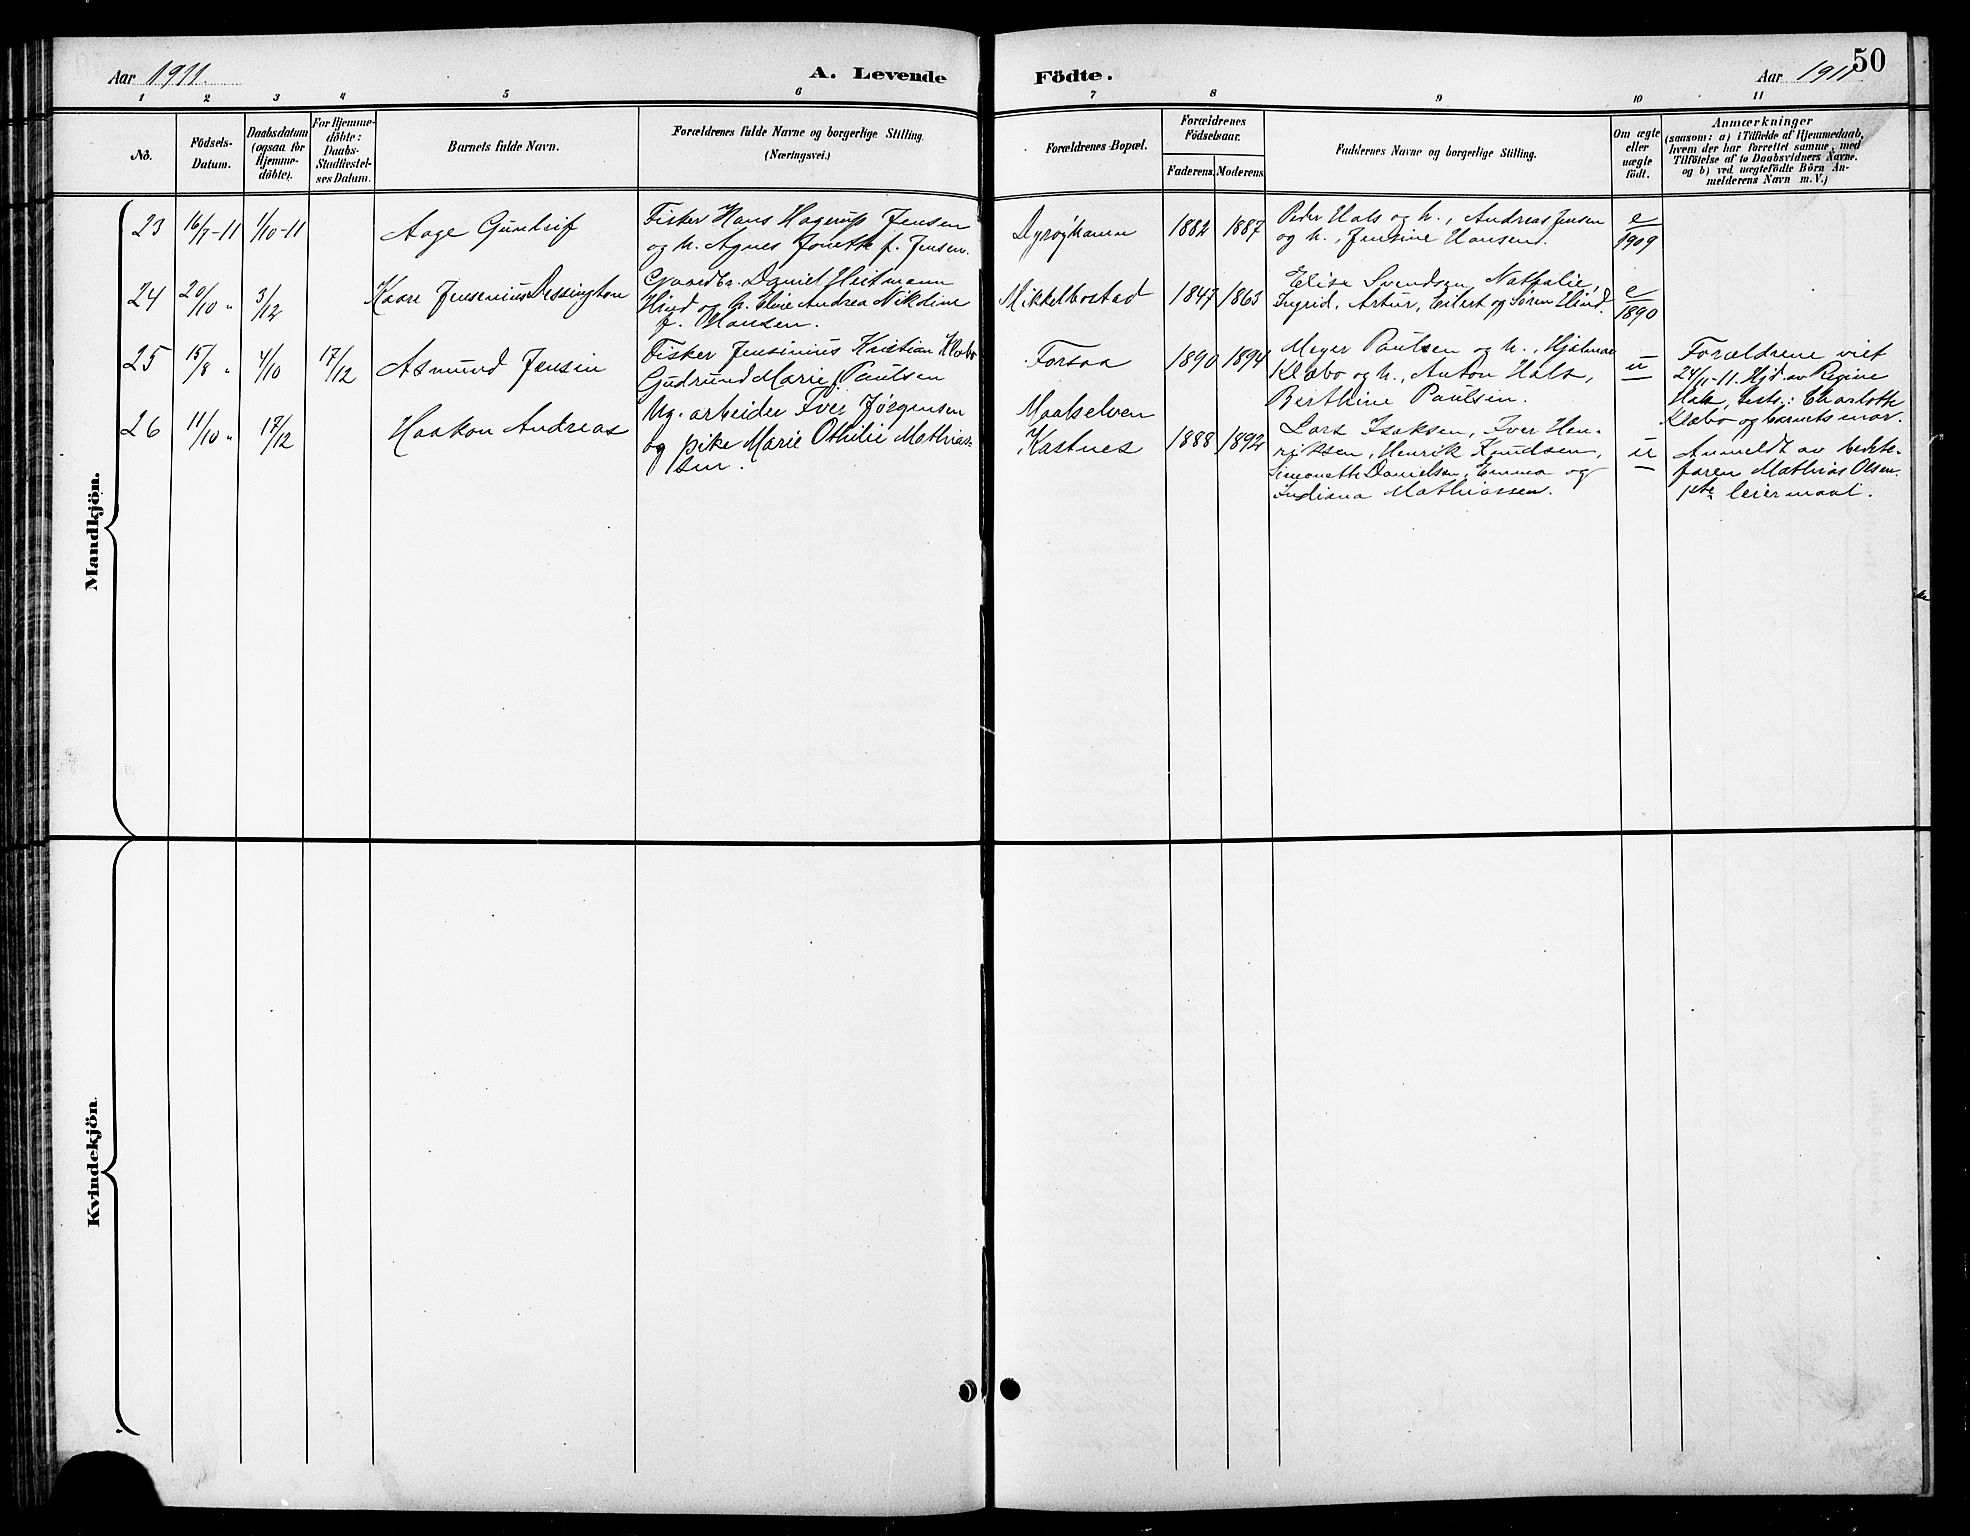 Aar 1911.
A. Levende
Födte.
Aar 1911
50
1 2 3 4 5 6 7 8 9 10 11
No.
Födsels-
Datum.
Daabsdatum
(ogsaa for
Hjemme-
döbte).
For Hjemme-
döbte:
Daabs-
Stadfæstel-
ses Datum.
Barnets fulde Navn.
Forældrenes fulde Navne og borgerlige Stilling.
(Næringsvei.)
Forældrenes Bopæl.
Forældrenes
Födselsaar.
Faderens. Moderens.
Faddernes Navne og borgerlige Stilling.
Om ægte
eller
uægte
födt.
Anmærkninger
(saasom: a) i Tilfælde af Hjemmedaab,
hvem der har forrettet samme, med
Tilföielse af to Daabsvidners Navne,
og b) ved uægtefödte Börn An-
melderens Navn m. V.)
Mandkjön.
23
16/7-11
1/10-11
Aage Gunleif
Fisker Hans Hagerup Jensen
og h. Agnes Jonette f. Jensen.
Dyrøyhamn
1882
1887
Peder Hals og h., Andreas Jensen
og h., Jensine Hansen.
e
1909
24
20/10 "
3/12
Kaare Jensenius Dessington
Gaardbr. Daniel Heitmann
og h. Eline Andrea Nikoline
f. Hansen.
Mikkelbostad
1847
1863
Elise Svendsen, Nathalie,
Ingrid, Artur, Eilert og Søren
e
1890
25
15/8 "
4/10
17/12
Asmund Jensin
Fisker Jensinius Kristian Klæbo
Gudrund Marie f. Paulsen
Forsaa
1890
1894
Meyer Paulsen og h., Hjalmar
Klæbo og h., Anton Hals,
Berthine Paulsen.
u
Forældrene viet
24/11-11. Hjd. av Regine
Hak, test.: Charlotte
Klæbo og barnets mor.
26
11/10 "
17/12
Haakon Andreas
Ug. arbeider Iver Jørgensen
og pike Marie Othilie Mathias-
sen.
Maalselven
Kastnes
1888
1892
Lars Isaksen, Iver Hen-
riksen, Henrik Knudsen,
Simonette Danielsen, Emma og
Indiana Mathiassen.
u
Anmeldt av bedste-
faren Mathias Olsen.
1ste leiermaal.
Kvindekjön.